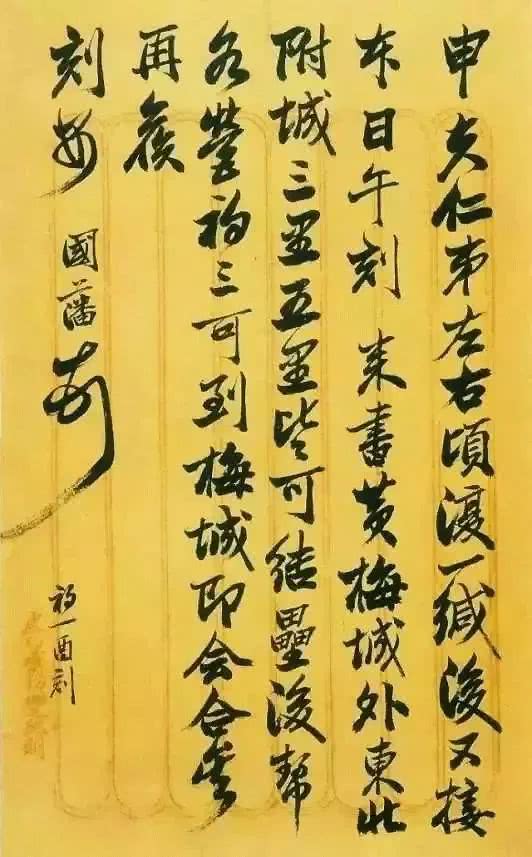 申夫仁弟左右頃復一缄後又接
东日午刻来書黄梅城外東北
附城三里五里皆可結壘後幫
各營初三可到梅城即会合矣
再候
刻安 國藩
初一酉刻